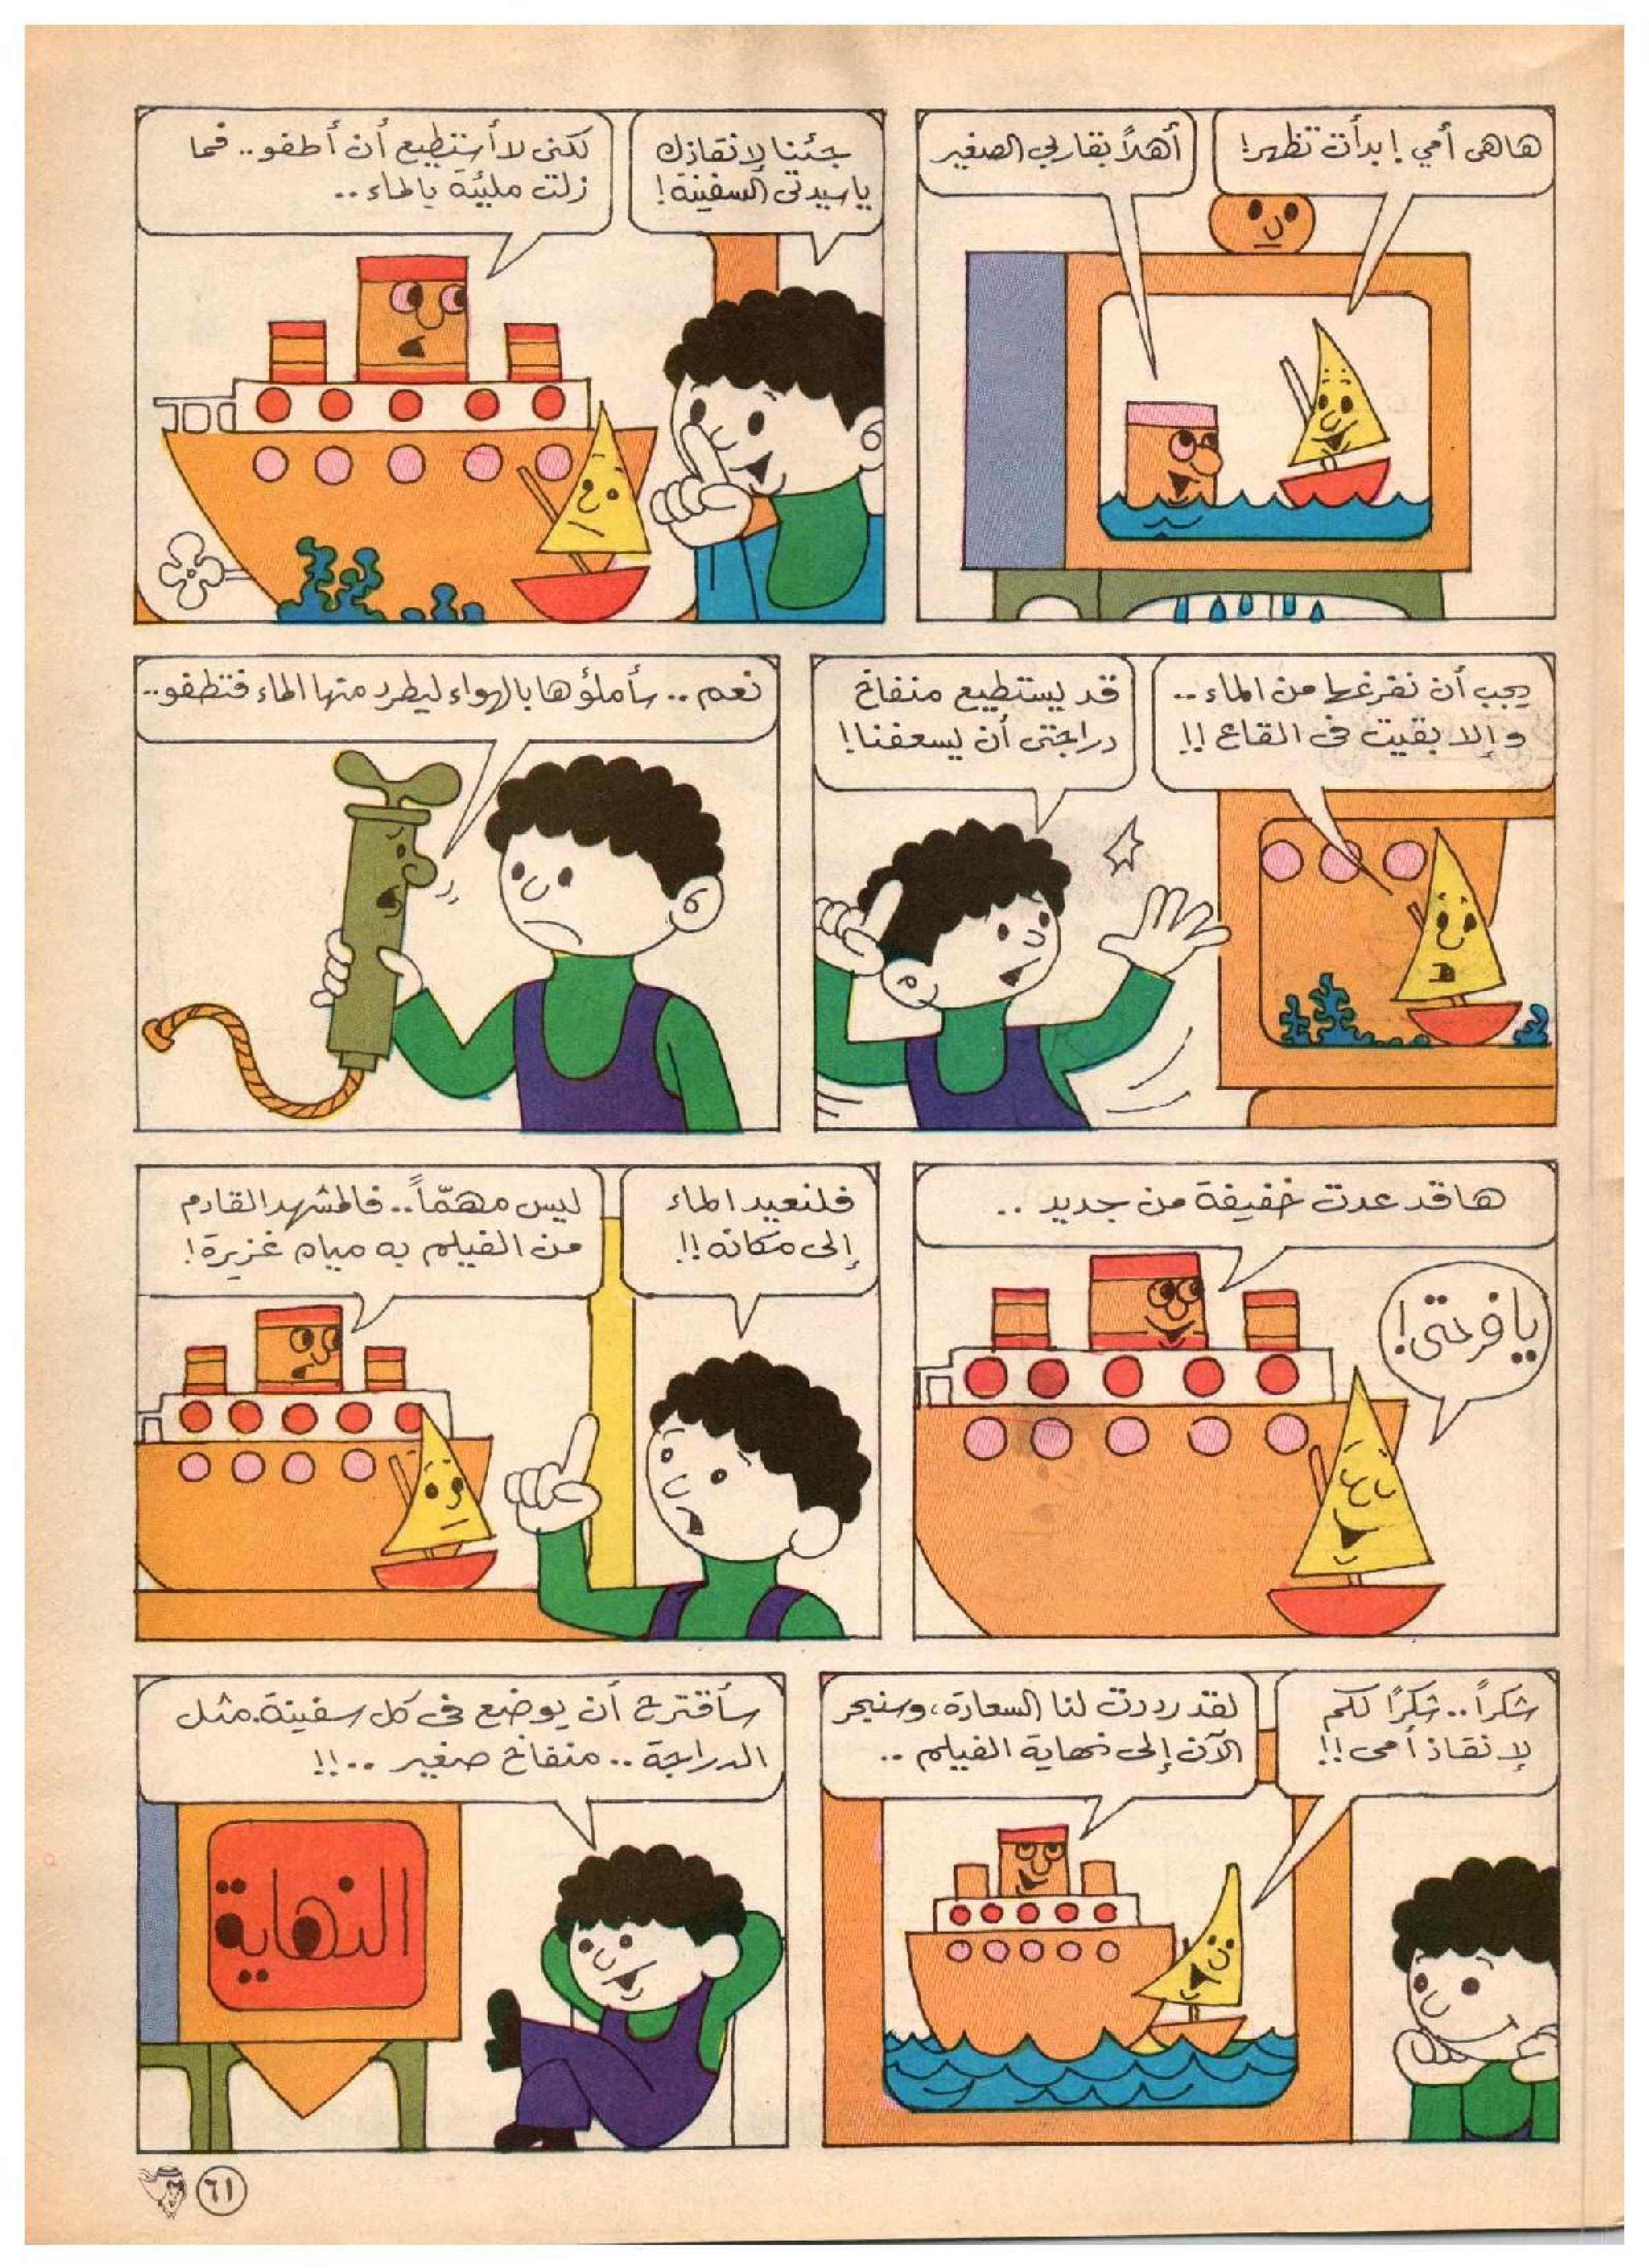 هاهى أمي ! بدأت تظهر!
أهلاً بقاربي الصغير
جئنا لإنقاذك
ياسيدتى السفينة!
لكنى لا أستطيع أن أطفو.. فما
زلت مليئة بالماء..
يجب أن نفرغها من الماء..
وإلا بقيت فى القاع !!
قد يستطيع منفاخ
دراجتى أن يسعفنا!
نعم.. سأملؤها بالهواء ليطرد منها الماء فتطفو..
ها قد عدت خفيفة من جديد ..
يا فرحتى!
فلنعيد الماء
إلى مكانه !!
ليس مهمّاً.. فالمشهد القادم
من الفيلم به مياه غزيرة!
شكراً.. شكرًا لكم
لإنقاذ أمى !!
لقد رددت لنا السعادة، وسنبحر
الآن إلى نهاية الفيلم ..
سأقترح أن يوضع فى كل سفينة.مثل
الدراجة.. منفاخ صغير ..!!
النهاية
٦١